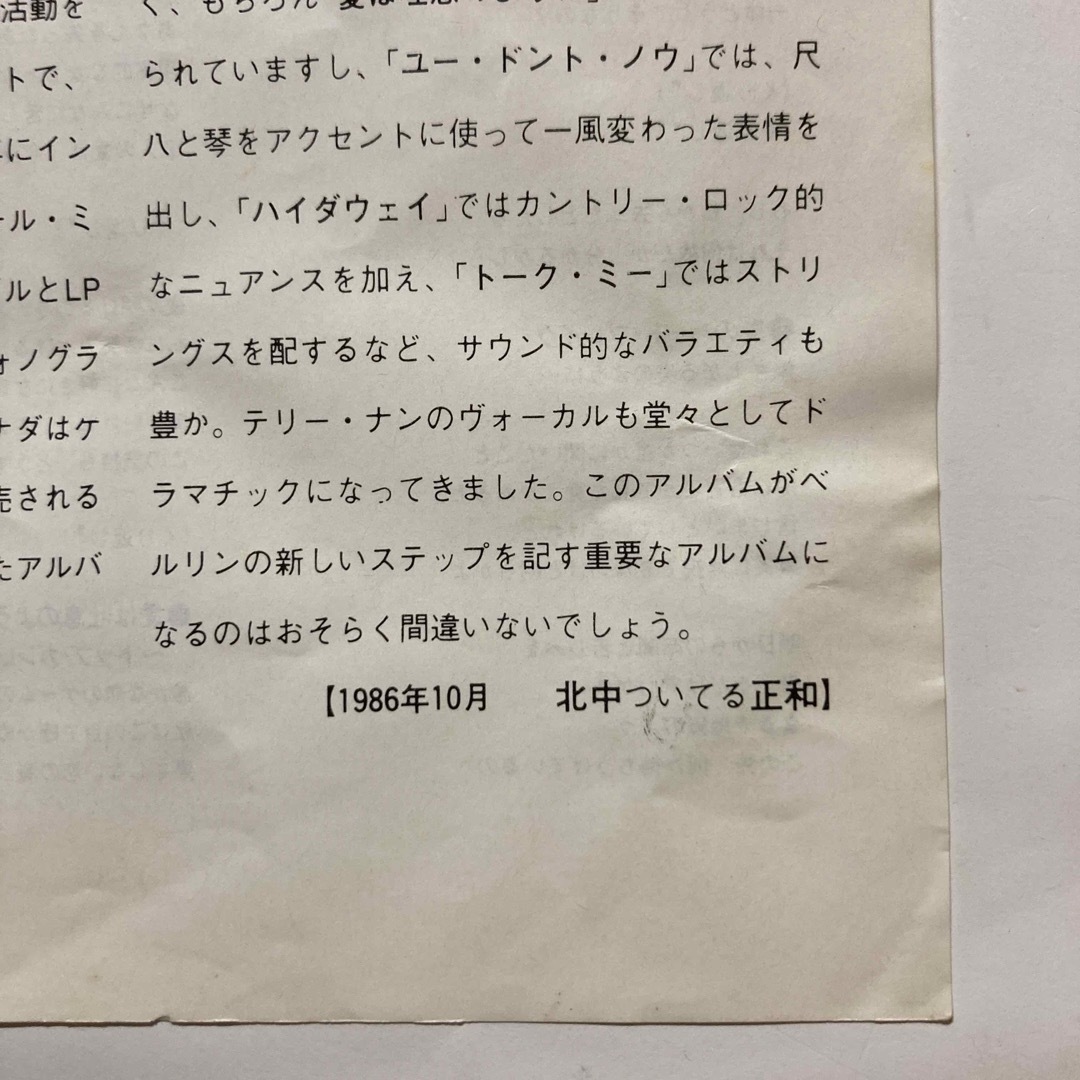 活動を
トで、
にイン
ール・ミ
ルとLP
ォノグラ
ナダはケ
売される
たアルバ
られていますし、「ユー・ドント・ノウ」では、尺
八と琴をアクセントに使って一風変わった表情を
出し、「ハイダウェイ」ではカントリー・ロック的
なニュアンスを加え、「トーク・ミー」ではストリ
ングスを配するなど、サウンド的なバラエティも
豊か。テリー・ナンのヴォーカルも堂々としてド
ラマチックになってきました。このアルバムがベ
ルリンの新しいステップを記す重要なアルバムに
なるのはおそらく間違いないでしょう。
【1986年10月　北中ついてる正和】